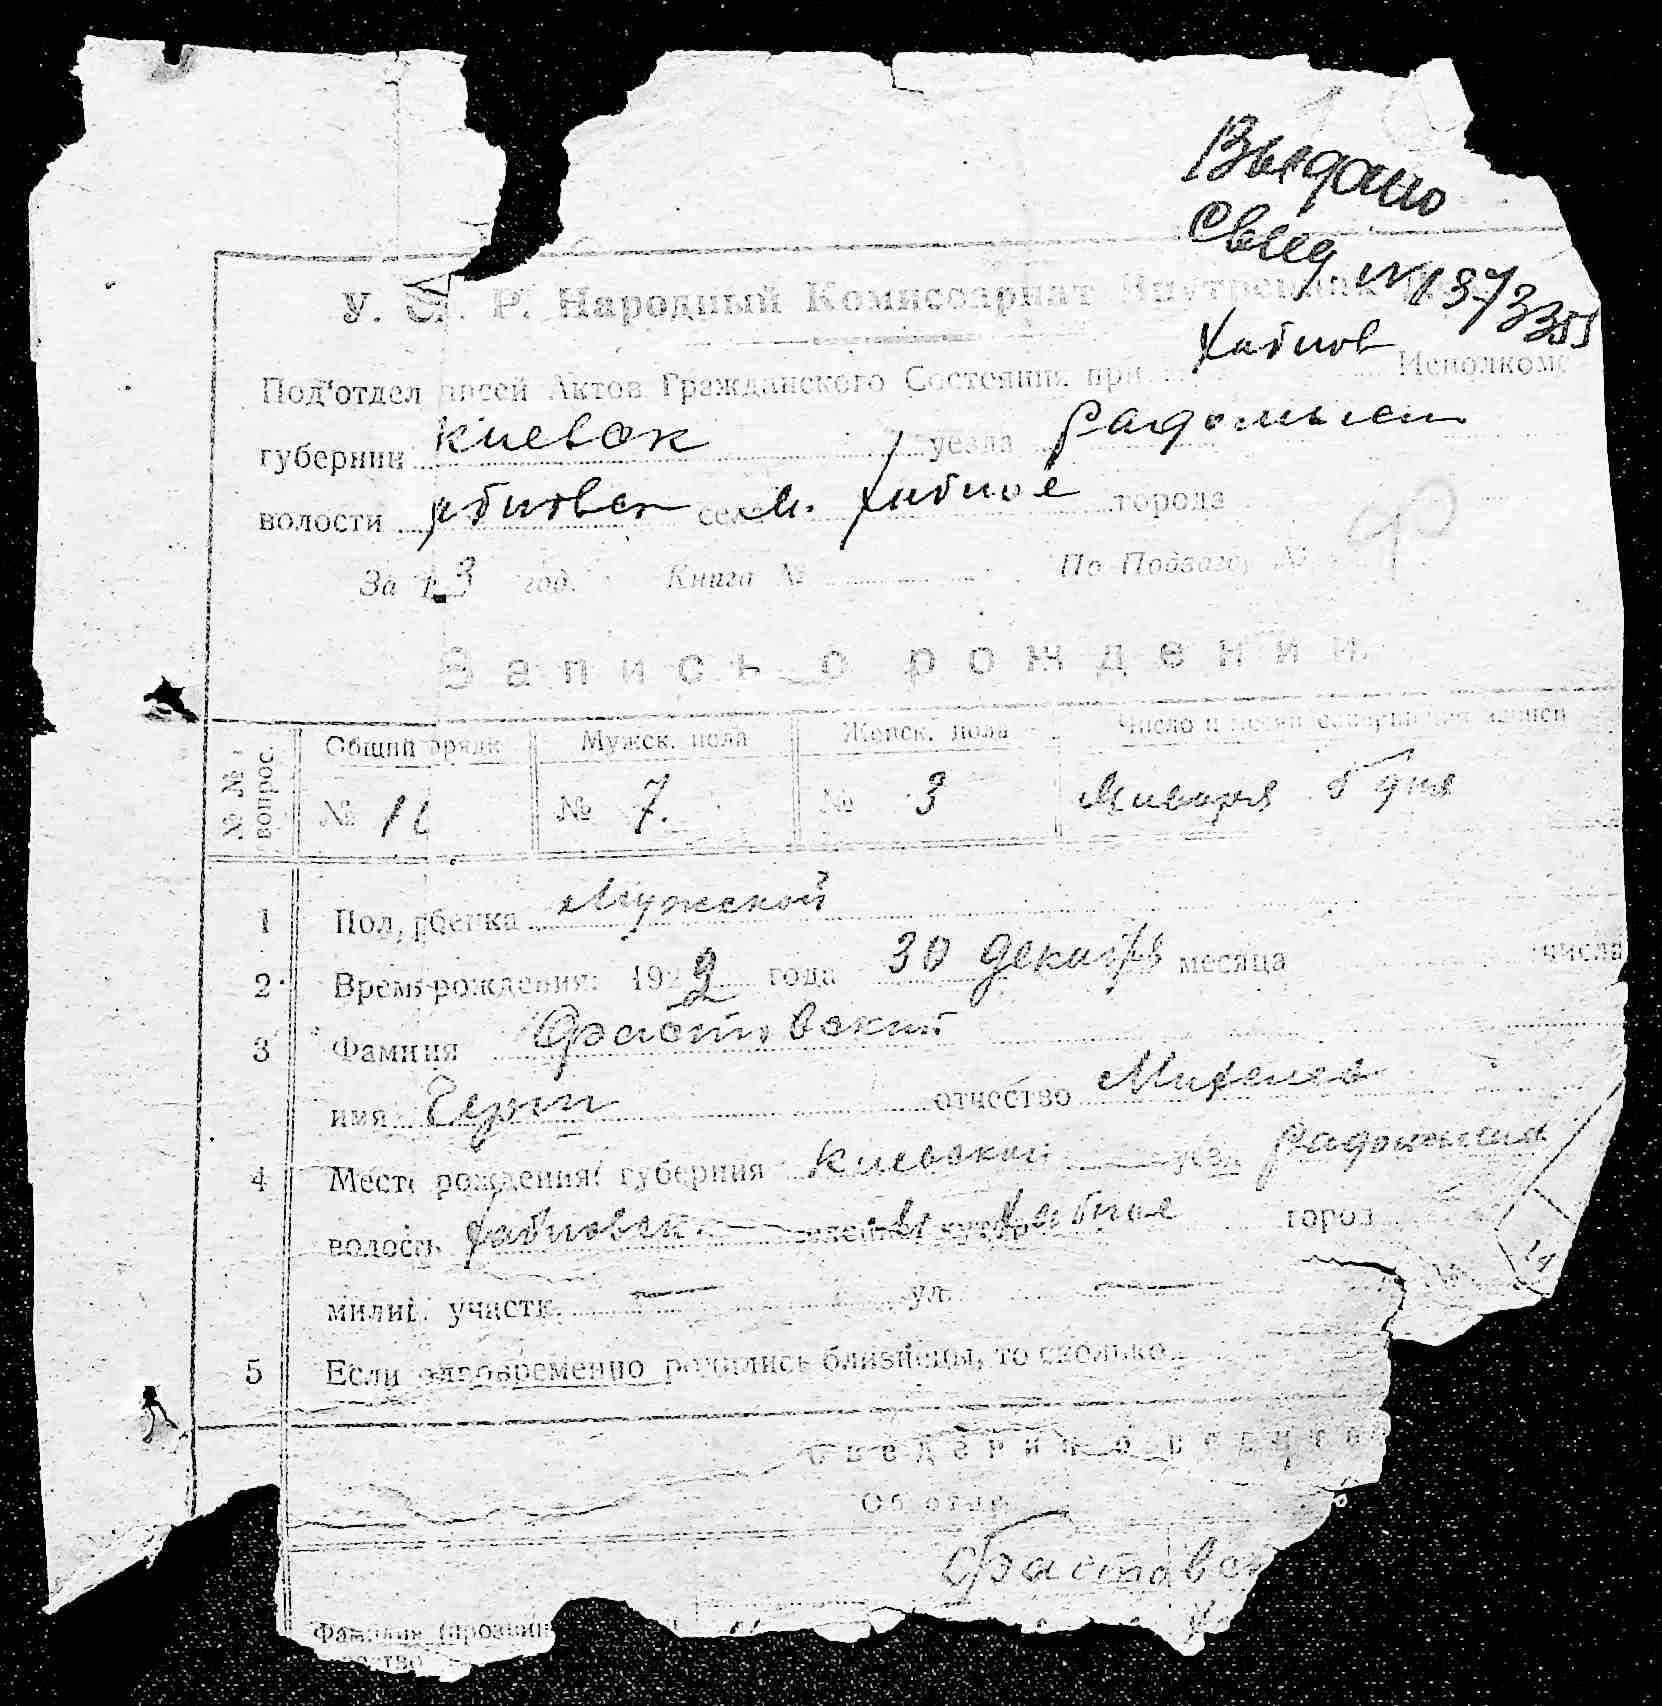 Выдано
Свид. № 373355
У. С. Р. Народный Комиссариат Внутренних
Под'отдел писей Актов Гражданского Состояния при Хабнов Исполкоме
губернии Киевск уезда Радомысл
волости абновск села м. Хабное города
За 23 год. Книга № По Подзаго №
Запись о рождении.
№№ вопрос. Общий оряди Мужск. пола Женск. пола Число и месяц совершения записи
№ № 7. № 3 Января 5 дня
1 Пол, рбенка Мужской
2 Время рождения: 1922 года 30 декабря месяца числа
3 Фамиия Фастовский
имя Герш отчество Михелев
4 Мест рождения: губерния Киевской уезд Радомысл
волость Хабновск. м Хабное город
милиц. участк. — ул. —
5 Если одновременно родились близнецы, то сколько
Сведения о родител
Об отце
Фастовск
Фамилия (прозвищ